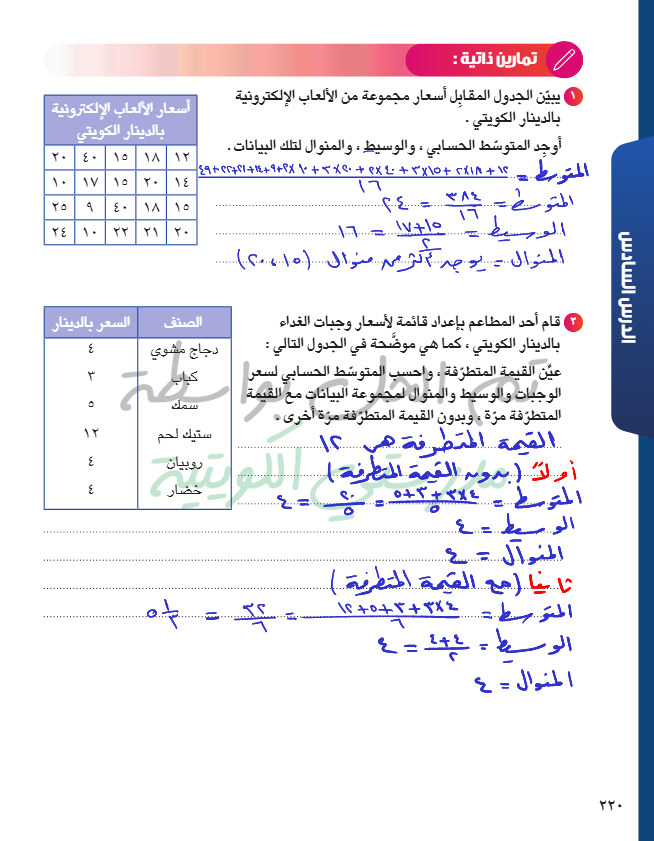 تمارين ذاتية :
١ يبيّن الجدول المقابل أسعار مجموعة من الألعاب الإلكترونية
بالدينار الكويتي .
أوجد المتوسّط الحسابي ، والوسيط ، والمنوال لتلك البيانات .
أسعار الألعاب الإلكترونية
بالدينار الكويتي
١٢ ١٨ ١٥ ٤٠ ٢٠
١٤ ٢٠ ١٥ ١٧ ١٠
١٥ ١٨ ٤٠ ٩ ٢٥
٢٠ ٢١ ٢٢ ١٠ ٢٤
المتوسط =
١٦
المتوسط = ٣٨٤/١٦ = ٢٤
الوسيط = ١٧+١٥/٢ = ١٦
المنوال = يوجد أكثر من منوال (١٥، ٢٠)
٢ قام أحد المطاعم بإعداد قائمة لأسعار وجبات الغداء
بالدينار الكويتي ، كما هي موضّحة في الجدول التالي :
عيّن القيمة المتطرّفة ، واحسب المتوسّط الحسابي لسعر
الوجبات والوسيط والمنوال لمجموعة البيانات مع القيمة
المتطرّفة مرّة ، وبدون القيمة المتطرّفة مرّة أخرى .
الصنف السعر بالدينار
دجاج مشوي ٤
كباب ٣
سمك ٥
ستيك لحم ١٢
روبيان ٤
خضار ٤
تم الحل بواسطة
مدرستي الكويتية
القيمة المتطرفة هي ١٢
أولاً (بدون القيمة المتطرفة)
المتوسط = ٣×٤+٣+٥/٥ = ٢٠/٥ = ٤
الوسيط = ٤
المنوال = ٤
ثانيا (مع القيمة المتطرفة)
المتوسط = ٣×٤+٣+٥+١٢/٦ = ٣٢/٦ = ٥ ١/٣
الوسيط = ٤+٤/٢ = ٤
المنوال = ٤
الدرس السادس
٢٢٠